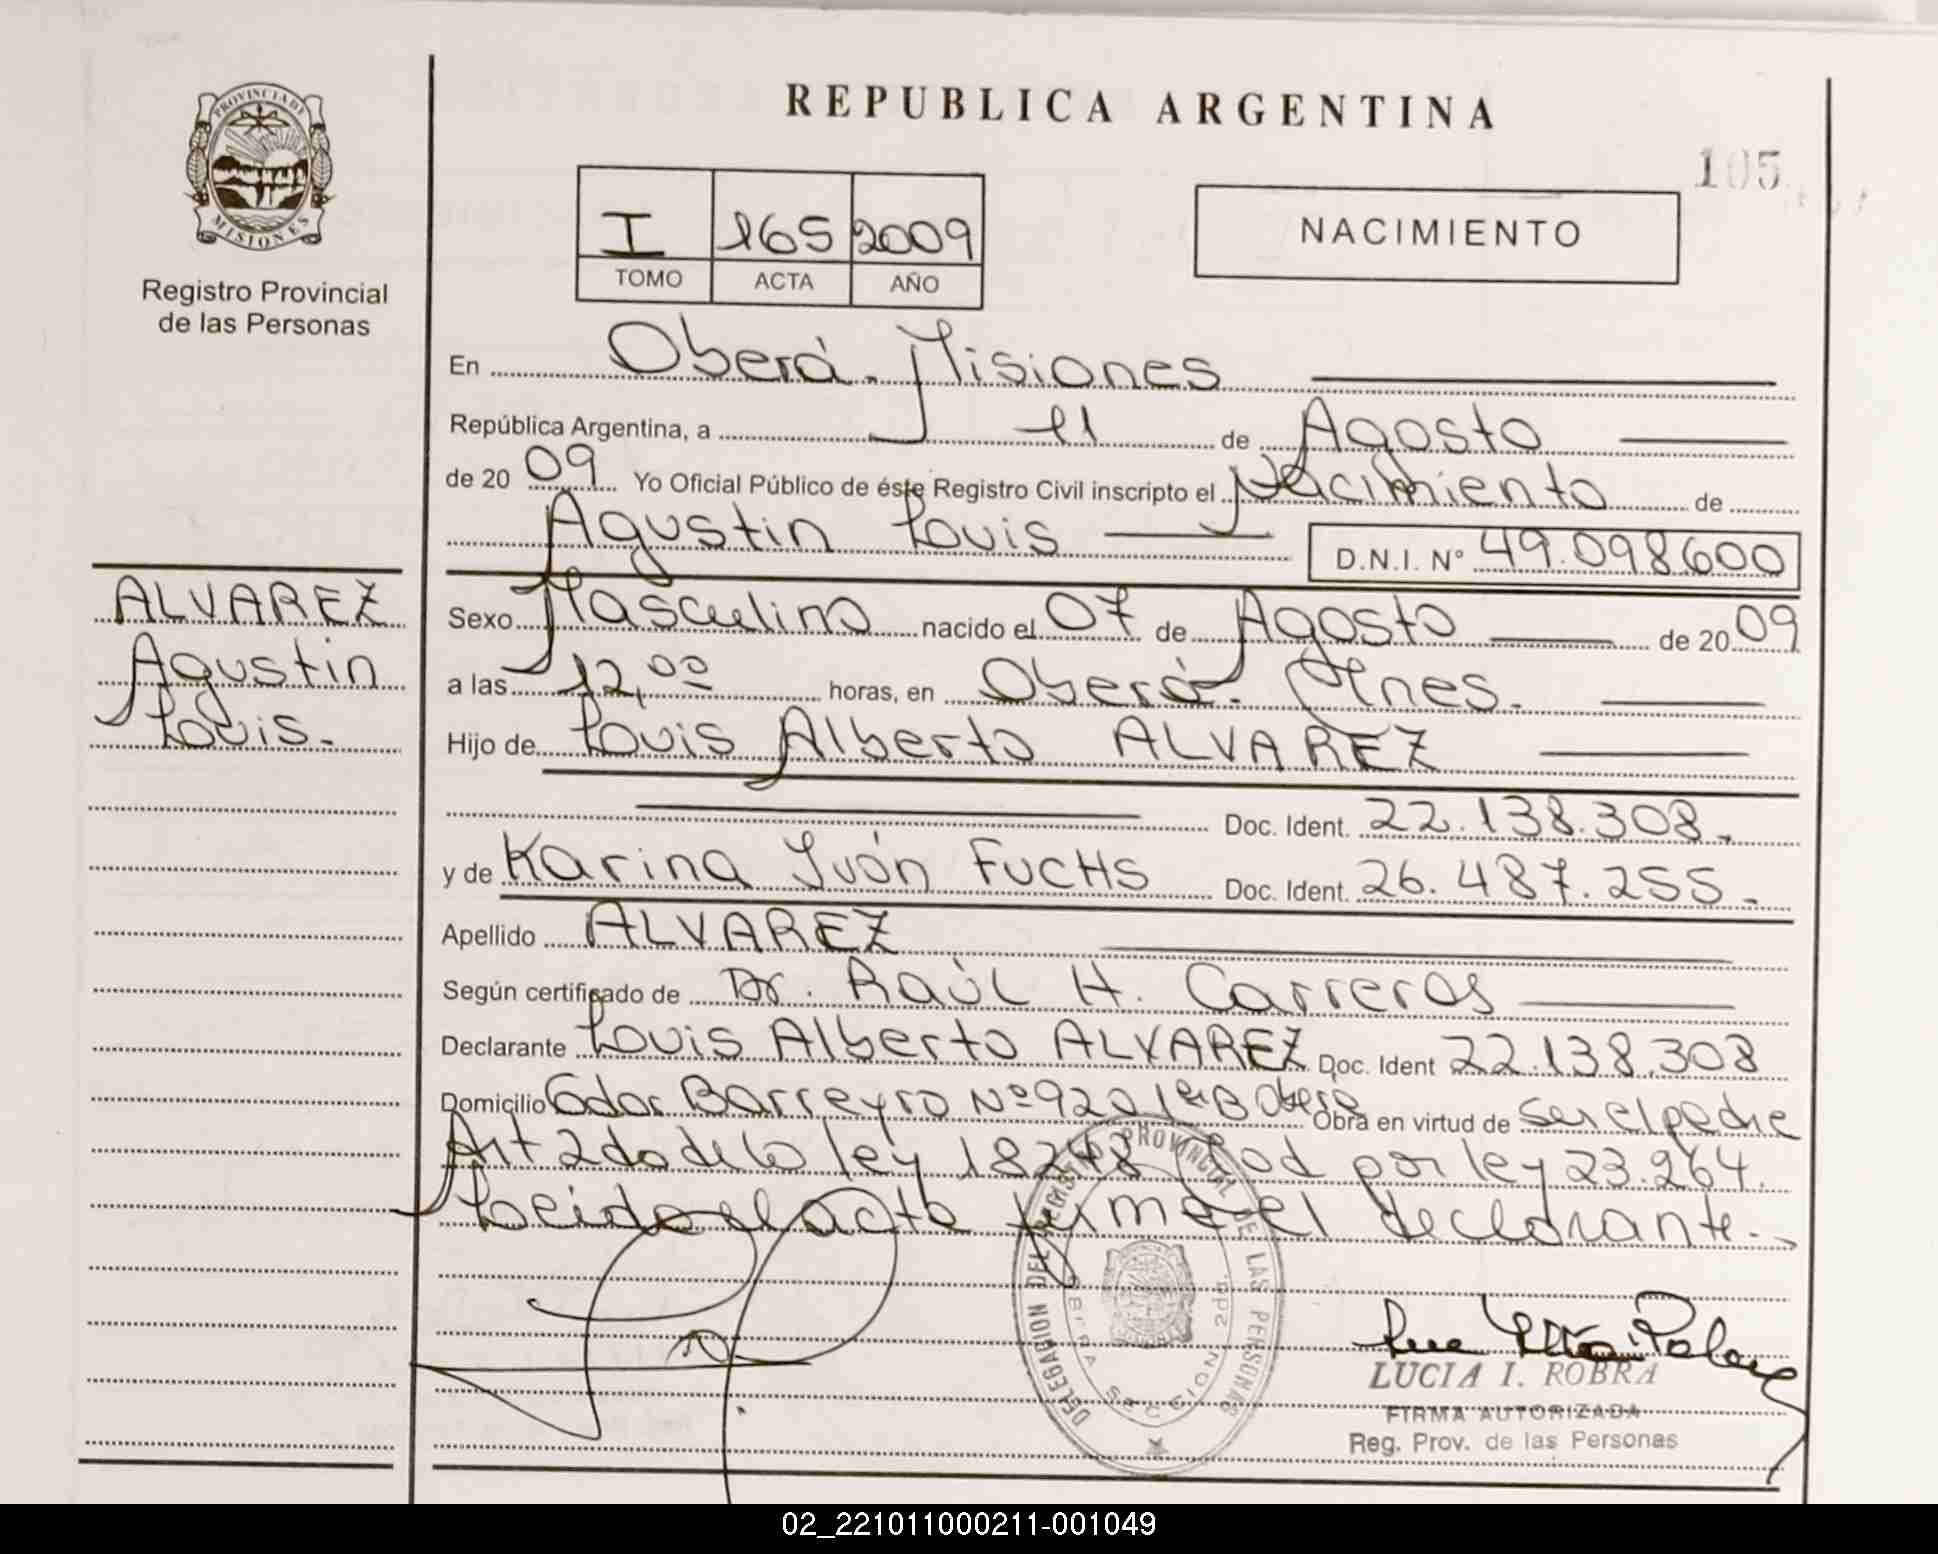 REPUBLICA ARGENTINA
105
PROVINCIA DE
MISIONES
Registro Provincial
de las Personas
I 165 2009
TOMO ACTA AÑO
NACIMIENTO
En Oberá - Misiones
República Argentina, a 11 de Agosto
de 20 09 Yo Oficial Público de éste Registro Civil inscripto el Nacimiento de
Agustin Louis D.N.I. N° 49.098.600
ALVAREZ
Agustin
Louis.-
Sexo Masculino nacido el 07 de Agosto de 20 09
a las 12,00 horas, en Oberá - Mnes.
Hijo de Louis Alberto ALVAREZ
Doc. Ident. 22.138.308.
y de Karina Ivón FUCHS Doc. Ident. 26.487.255.
Apellido ALVAREZ
Según certificado de Dr. Raúl H. Carreros
Declarante Louis Alberto ALVAREZ Doc. Ident 22.138.308
Domicilio Gdor Barreyro Nº 920 1er B Oberá Obra en virtud de ser el padre
Art 2do de la ley 18248 Mod por ley 23.264.
Leida el acta firma el declarante.-
DELEGACION DEL REGISTRO PROVINCIAL DE LAS PERSONAS
SECCION
LUCIA I. ROBRA
FIRMA AUTORIZADA
Reg. Prov. de las Personas
02_221011000211-001049